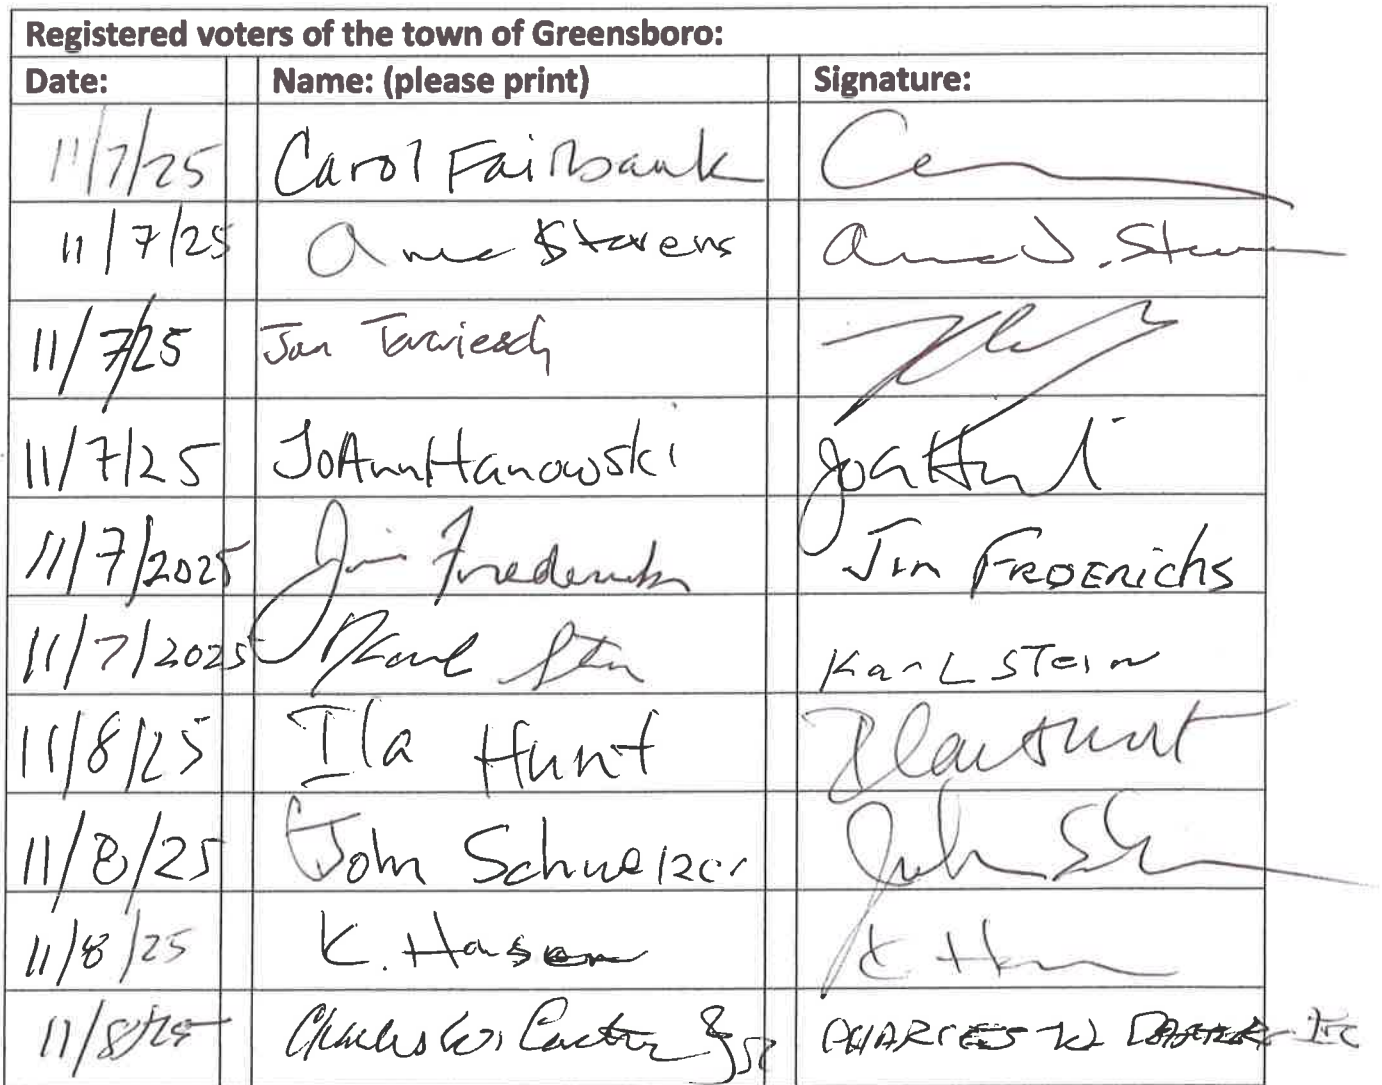 Registered voters of the town of Greensboro:
Date: Name: (please print) Signature:
11/7/25 Carol Fairbank
11/7/25 Anne Stevens Anne J. Stevens
11/7/25 Jan
11/7/25 JoAnn Hanowski
11/7/2025 Jim Frederichs Jim FREDERichs
11/7/2025 Karl Stein KarL STein
11/8/25 Ila Hunt Ila Hunt
11/8/25 John Schweizer John
11/8/25 K. Hansen K H
11/8/25 Charles W. CHARLES W